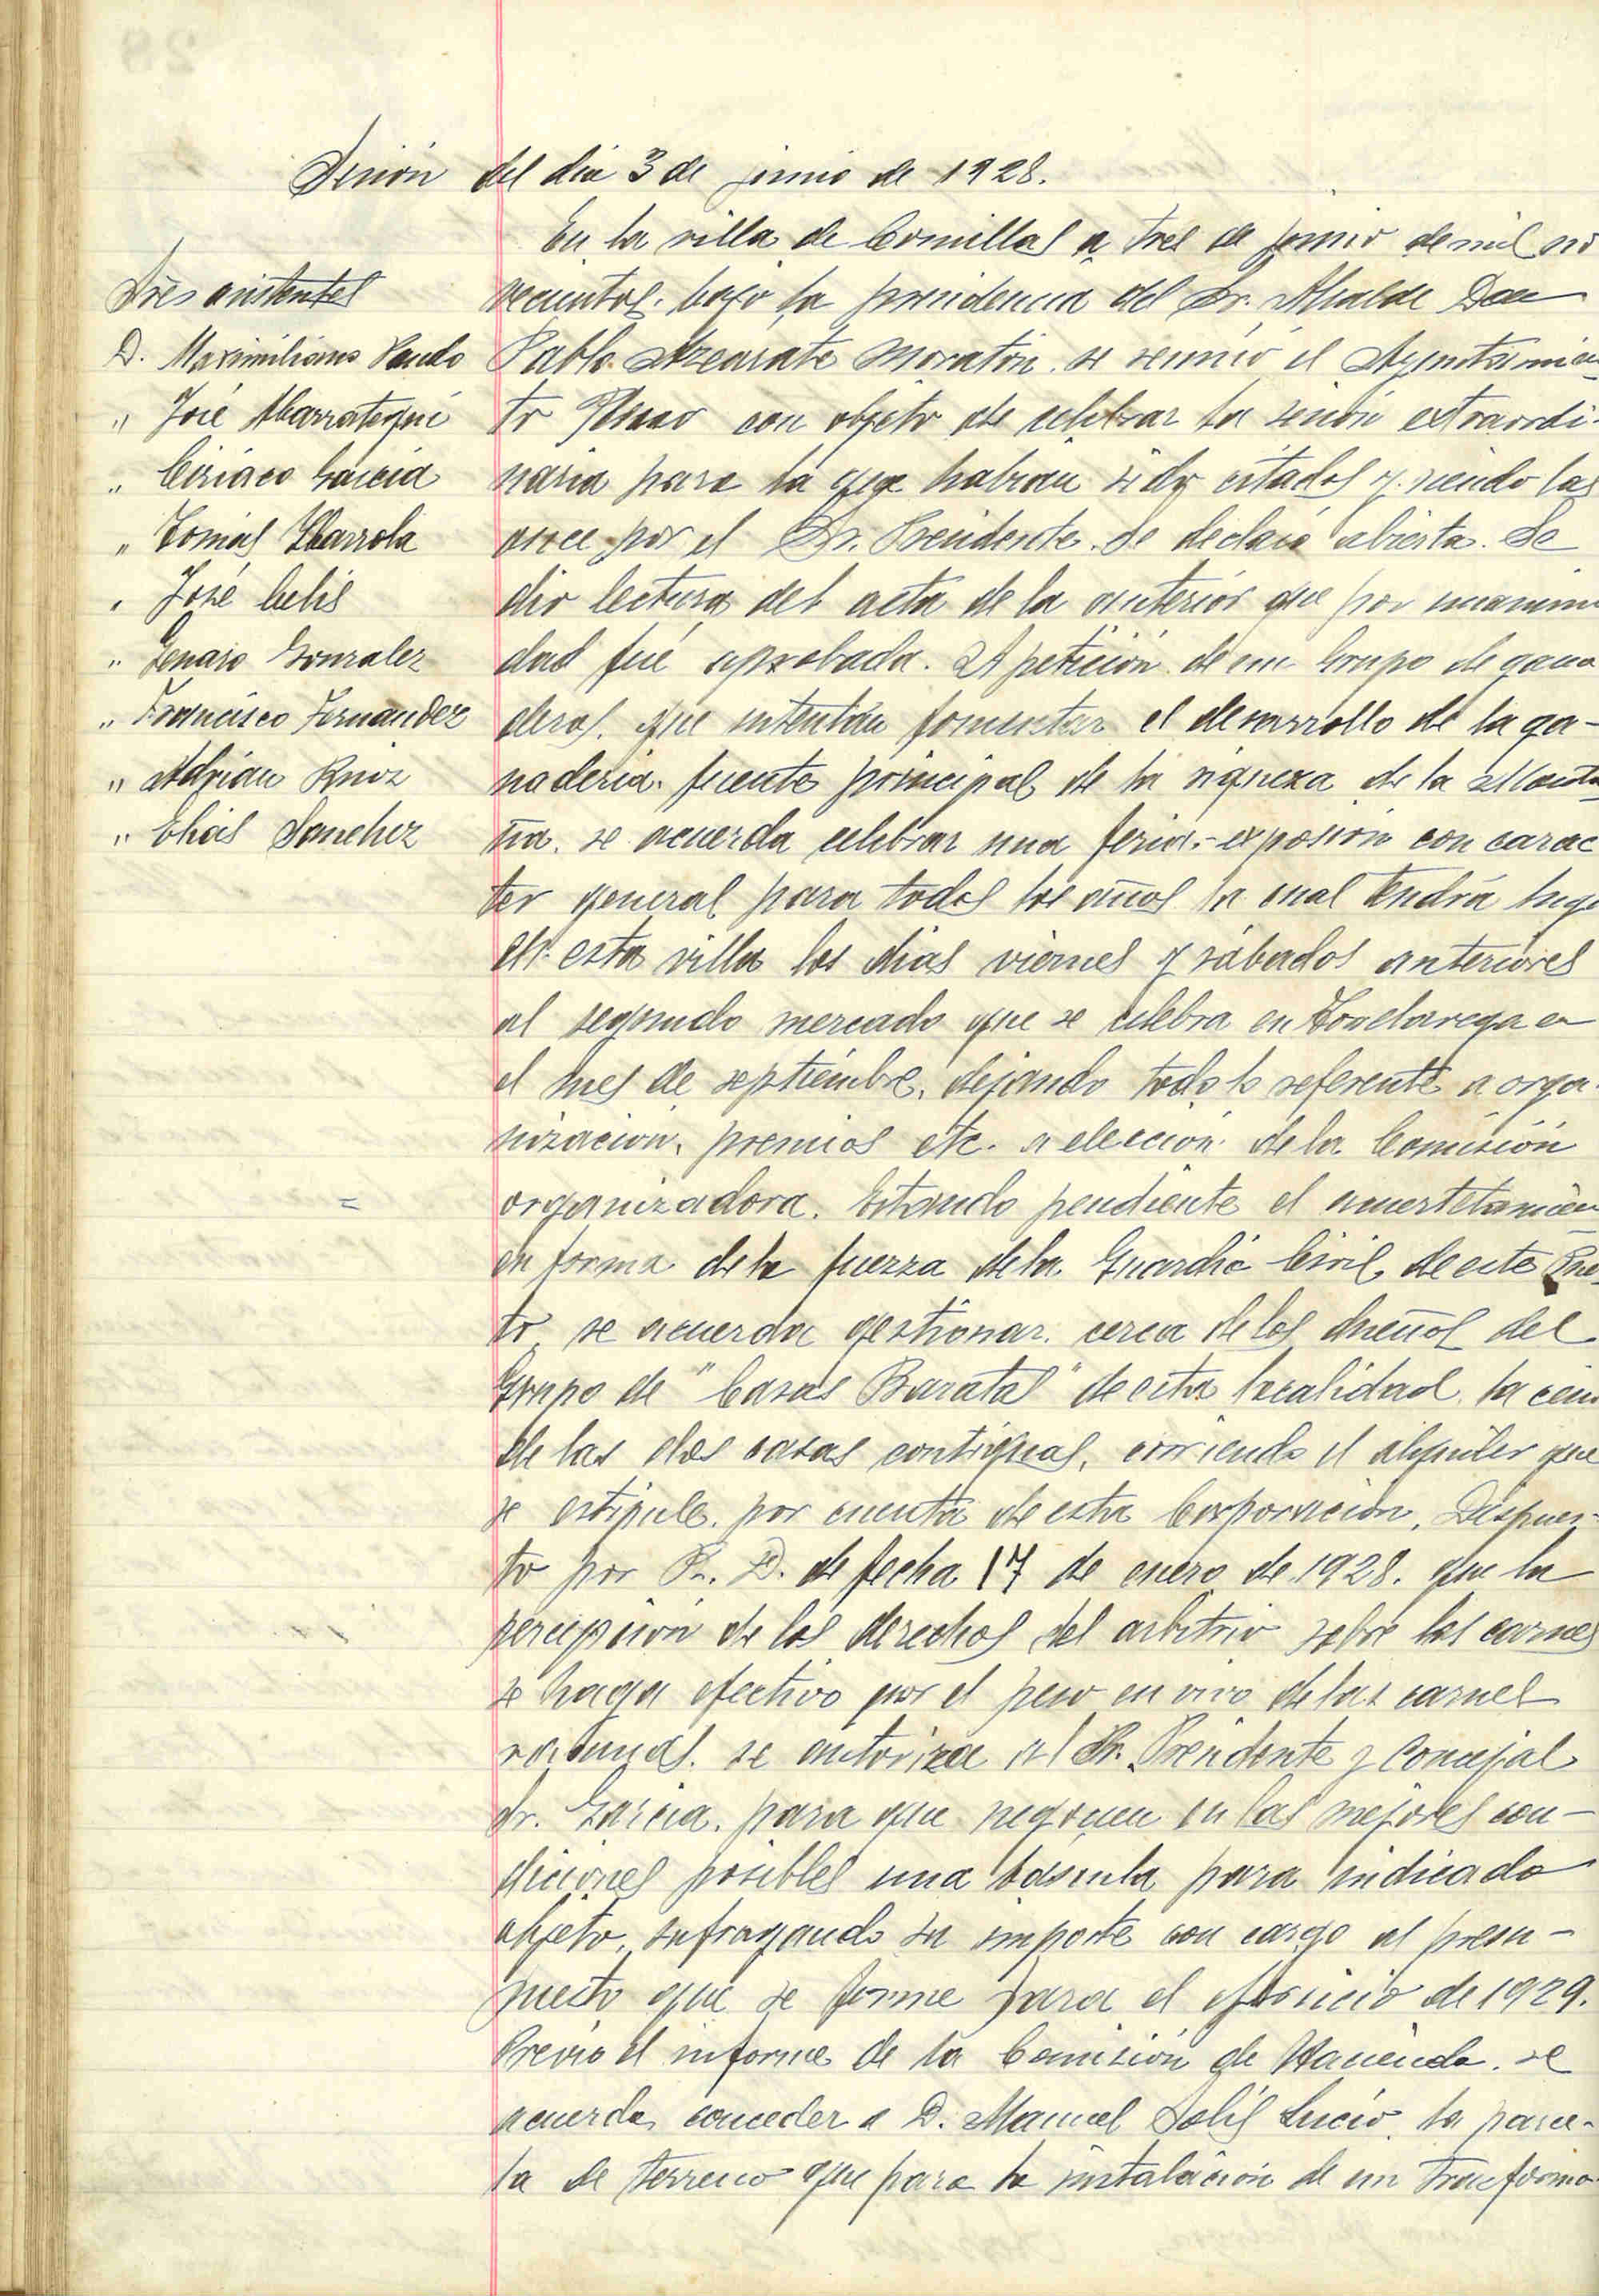 Sesión del día 3 de junio de 1928.
Sres asistentes
D. Maximiliano Pando
" José Abarrategui
" Ciriaco García
" Tomás Ibarrola
" José Celis
" Genaro Gonzalez
" Francisco Fernandez
" Adrián Ruiz
" Elías Sanchez
En la villa de Comillas a tres de junio de mil no
vecientos. bajo la presidencia del Sr. Alcalde Don
Pablo Azcárate Moratón. se reunió el Ayuntamien-
to Pleno con objeto de celebrar la sesión extraordi-
naria para la que habían sido citados y siendo las
once por el Sr. Presidente. se declaró abierta. Se
dio lectura del acta de la anterior que por unanimi
dad fué aprobada. A petición de un Grupo de gana
deros. que intentan fomentar el desarrollo de la ga-
nadería. fuente principal de la riqueza de la Monta-
ña. se acuerda celebrar una feria-exposión con carac
ter general para todos los años la cual tendrá luga
en esta villa los días viernes y sábados anteriores
al segundo mercado que se celebra en Torrelavega en
el mes de septiembre. dejando todo lo referente a orga-
nización, premios etc. a elección de la Comisión
organizadora. Estando pendiente el acuertelamien
en forma de la fuerza de la Guardia Civil de este Pue-
to se acuerda gestionar. cerca de los dueños del
Grupo de "Casas Baratas" de esta localidad la cesi
de las dos casas contiguas, corriendo el alquiler que
se estipule. por cuenta de esta Corporación. Dispues-
to por R. D. de fecha 17 de enero de 1928. que la
percepción de los derechos del arbitrio sobre las carnes
se haga efectivo por el peso en vivo de las carnes
vacunas. se autoriza al Sr. Presidente y Concejal
Sr. García. para que negocien en las mejores con-
diciones posibles una báscula para indicado
objeto, sufragando su importe con cargo al presu-
puesto que se forme para el ejercicio de 1929.
Previo el informe de la Comisión de Hacienda. se
acuerda conceder a D. Manuel Solís Lucio la parce-
la de terreno que para la instalación de un tranforma-